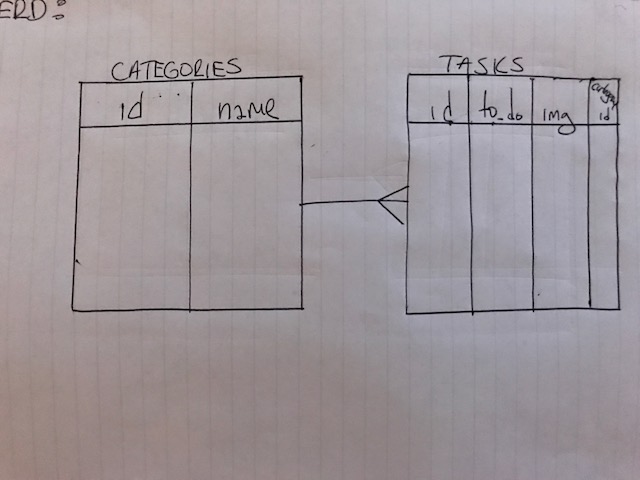 ERD:
CATEGORIES
id name
TASKS
id to_do img category id